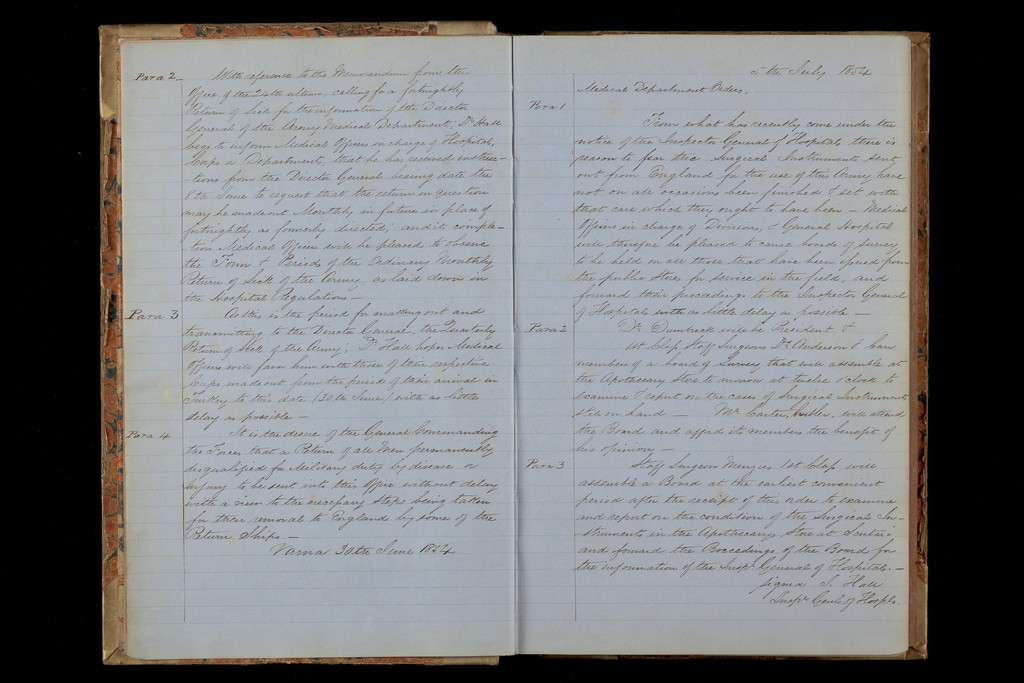 Para 2 With reference to the Memorandum from the
Office of the 24th ultimo, calling for a fortnightly
Return of Sick for the information of the Director
General of the Army Medical Department, Dr Hall
begs to inform Medical Officers in charge of Hospitals,
Corps or Departments, that he has received instruc-
tions from the Director General bearing date the
8th June to request that the return in question
may be made out Monthly in future in place of
fortnightly as formerly directed, and in comple-
tion Medical Officers will be pleased to observe
the Form & Periods of the Ordinary Monthly
Return of Sick of the Army, as laid down in
the Hospital Regulations —
Para 3 As this is the period for making out and
transmitting to the Director General, the Quarterly
Return of Sick of the Army; Dr Hall hopes Medical
Officers will favor him with those of their respective
Corps made out from the period of their arrival in
Turkey to this date (30th June) with as little
delay as possible —
Para 4 It is the desire of the General Commanding
the Forces that a Return of all Men permanently
disqualified for Military duty by disease or
injury to be sent into this Office without delay
with a view to the necessary steps being taken
for their removal to England by some of the
Return Ships —
Varna 30th June 1854
5th July 1854
Medical Department Orders,
Para 1
From what has recently come under the
notice of the Inspector General of Hospitals there is
reason to fear the Surgical Instruments sent
out from England for the use of this Army have
not on all occasions been finished & set with
that care which they ought to have been — Medical
Officers in charge of Divisions, & General Hospital
will therefore be pleased to cause boards of survey
to be held on all those that have been issued from
the public Stores for service in the field, and
forward their proceedings to the Inspector General
of Hospitals with as little delay as possible —
Para 2 Dr Dumbreck will be President &
1st Class Staff Surgeons Dr Anderson &
members of a board of Survey that will assemble at
the Apothecary Store to morrow at twelve o'clock to
examine & report on the cases of Surgical Instruments
still on hand — Mr Carter, Cutler, will attend
the Board and afford its members the benefit of
his opinion —
Para 3 Staff Surgeon Menzies 1st Class will
assemble a Board at the earliest convenient
period after the receipt of this order to examine
and report on the condition of the Surgical In-
struments in the Apothecaries Store at Scutari
and forward the Proceedings of the Board for
the information of the Inspr General of Hospitals. —
signed J. Hall
Inspr Genl of Hospls.